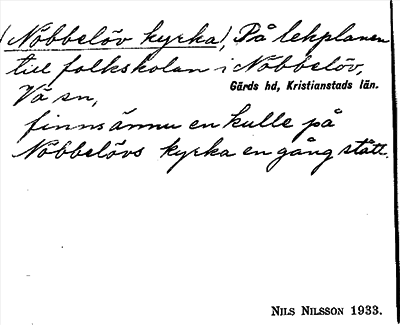 (Nobbelöv kyrka), På lekplanen
till folkskolan i Nobbelöv,
Gärds hd, Kristianstads län.
Vä sn,
finns ännu en kulle på
Nobbelövs kyrka en gång stått.
NILS NILSSON 1933.